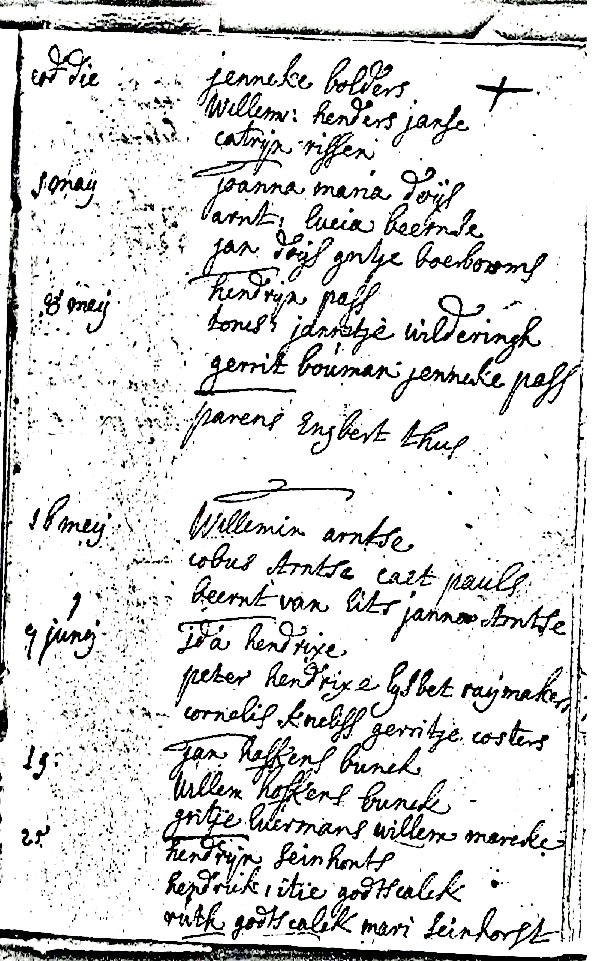 eod die jenneke bolders
Willem: henders janse
catrijn rissen
5 maij joanna maria doijs
arnt: lucia beernse
jan doijs geertje boerbooms
8 meij hendrijn pass
tonis: jannetje wilderingh
gerrit bouman jenneke pass
parens Engbert thus
18 meij Willemin arntse
cobus Arntse caet pauls
beernt van Eits Arntse
9 junij Ida hendrixe
peter hendrixe lijsbet raijmakers
cornelis gerritje costers
19. jan hoffkens bunck
Willem hoffkens bunck
gritje luermans willem marcke
25 hendrijn seinhonts
hendrick: itie godtscalck
ruth godtscalck mari seinhorst